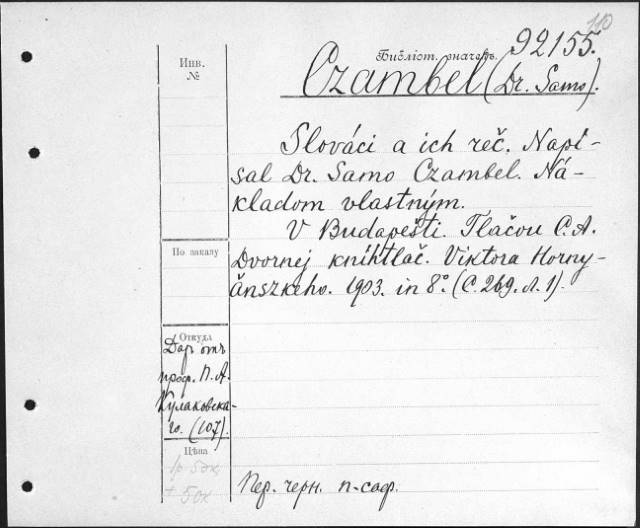 110
Библіот. значекъ. 92155.
Инв.
№
Czambel (Dr. Samo).
Slováci a ich reč. Napí-
sal Dr. Samo Czambel. Ná-
kladom vlastným.
V Budapešti. Tlačou C. A.
По заказу
Dvornej kníhtlač. Viktora Horny-
ánszkeho. 1903. in 8°. (C. 269. л. 1).
Откуда
Даръ отъ
проф. П. А.
Кулаковска-
го. (107).
Цѣна
1р 50к
+ 50к
Пер. черн. п-саф.